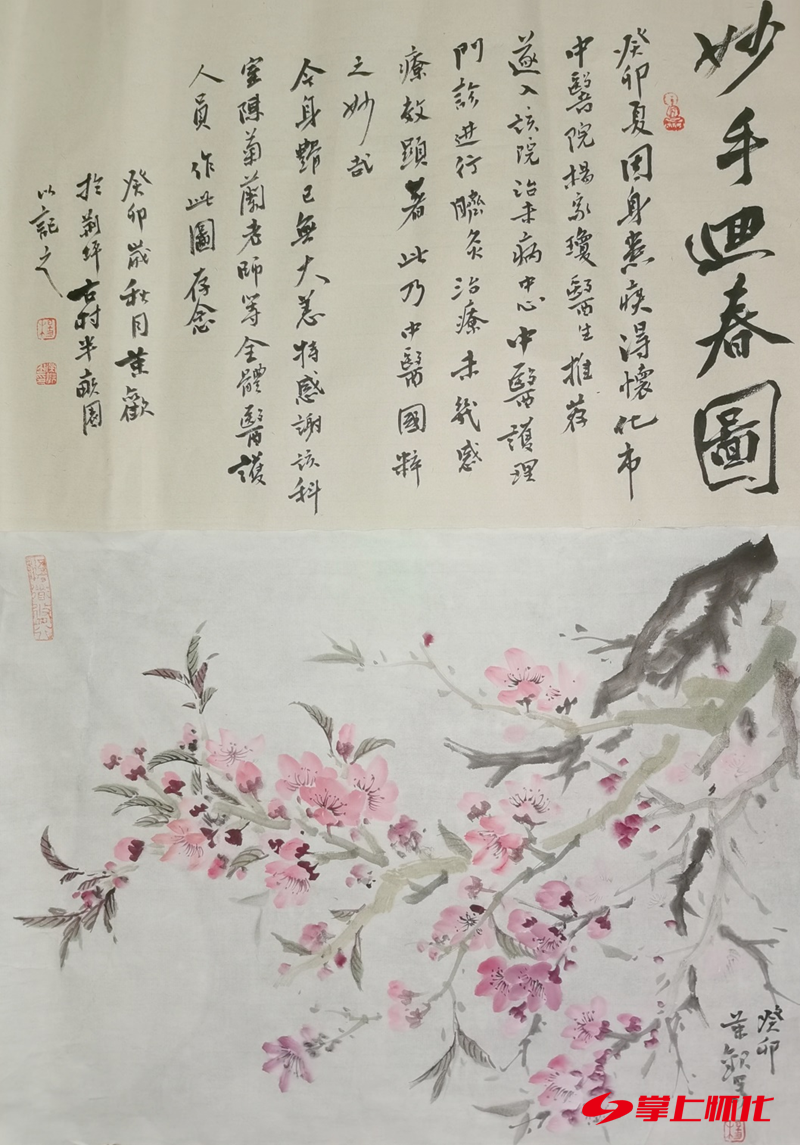 妙手迴春圖
癸卯夏因身患疾得懷化市
中醫院楊家瓊醫生推荐
遂入該院治未病中心中醫護理
門診進行臍灸治療未幾感
療效顯著此乃中醫國粹
之妙哉
今身體已無大恙特感謝該科
室陳菊蘭老師等全體醫護
人員作此圖存念
癸卯歲秋月葉歡
於荊坪古村半畝園
以記之
癸卯
葉歡
掌上怀化